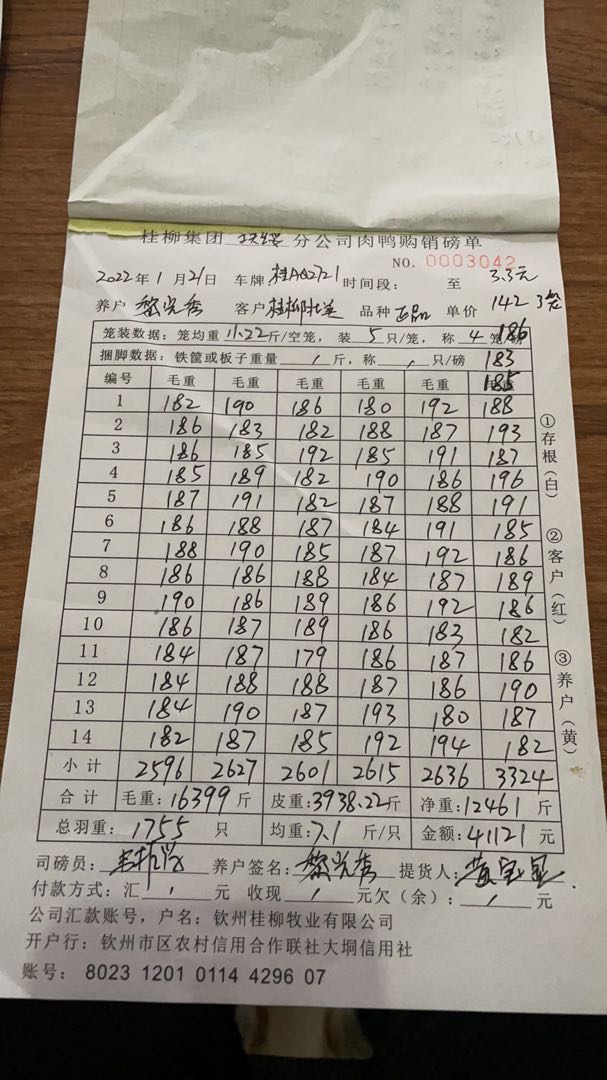 桂柳集团 分公司肉鸭购销磅单
NO. 0003042
2022年1月21日 车牌:桂AQ2721 时间段: 至 3.3元
养户 黎光秀 客户 桂柳 品种 正品 单价 142
笼装数据:笼均重 11.22 斤/空笼,装 5 只/笼,称 4 笼/磅 186
捆脚数据:铁筐或板子重量 / 斤,称 / 只/磅 183
编号 毛重 毛重 毛重 毛重 毛重 185
1 182 190 186 180 192 188
2 186 183 182 188 187 193
3 186 185 192 185 191 187
4 185 189 182 190 186 196
5 187 191 182 187 188 191
6 186 188 187 184 191 185
7 188 190 185 187 192 186
8 186 186 188 184 187 189
9 190 186 189 186 192 186
10 186 187 189 186 183 182
11 184 187 179 186 187 186
12 184 188 188 187 186 190
13 184 190 187 193 180 187
14 182 187 185 192 194 182
小计 2596 2627 2601 2615 2636 3324
合计 毛重:16399斤 皮重:3938.22斤 净重:12461斤
总羽重: 1755 只 均重:7.1 斤/只 金额:41121 元
司磅员: 养户签名:黎光秀 提货人:
付款方式:汇 / 元 收现 / 元欠(余): / 元
公司汇款账号,户名:钦州桂柳牧业有限公司
开户行:钦州市区农村信用合作联社大垌信用社
账号: 8023 1201 0114 4296 07
①存根(白)
②客户(红)
③养户(黄)